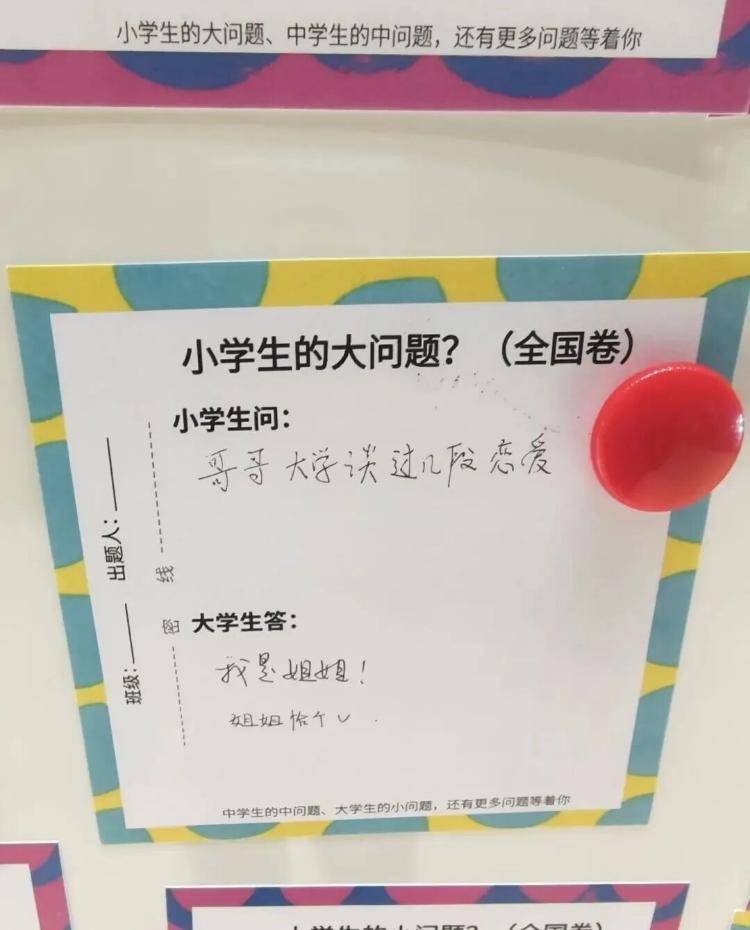 小学生的大问题、中学生的中问题，还有更多问题等着你
小学生的大问题？（全国卷）
小学生问：
哥哥大学谈过几段恋爱
出题人：
线
密
班级：
大学生答：
我是姐姐！
姐姐恰个
中学生的中问题、大学生的小问题，还有更多问题等着你